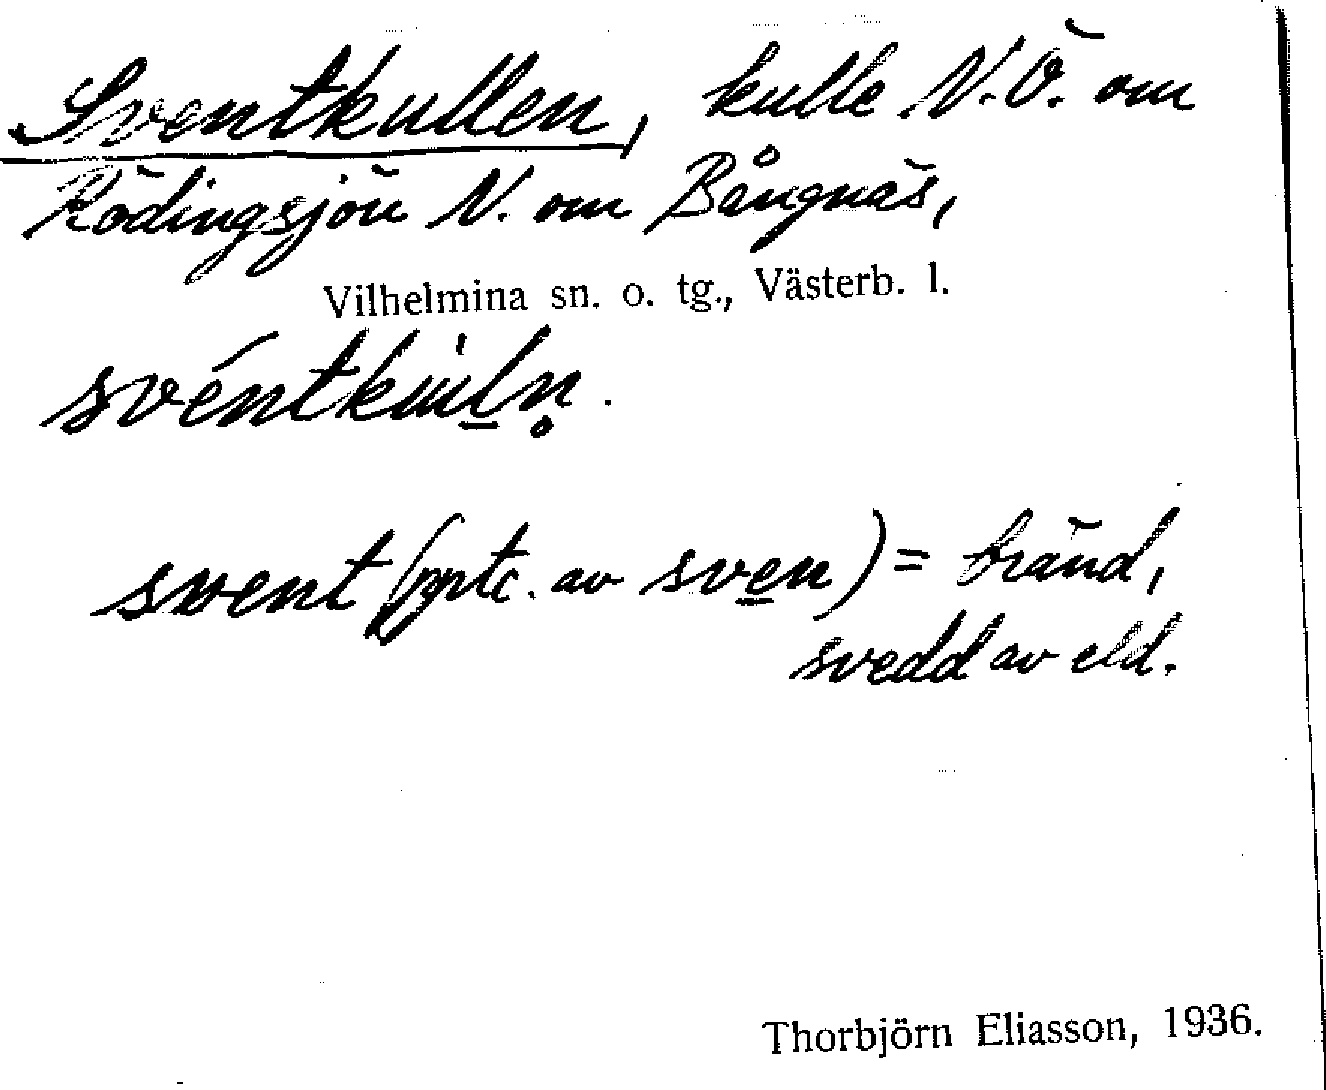 Sventkullen, kulle N.Ö. om
Rödingsjön N. om Bångnäs,
Vilhelmina sn. o. tg., Västerb. l.
svent (pptc. av sven) = bränd,
svedd av eld.
Thorbjörn Eliasson, 1936.